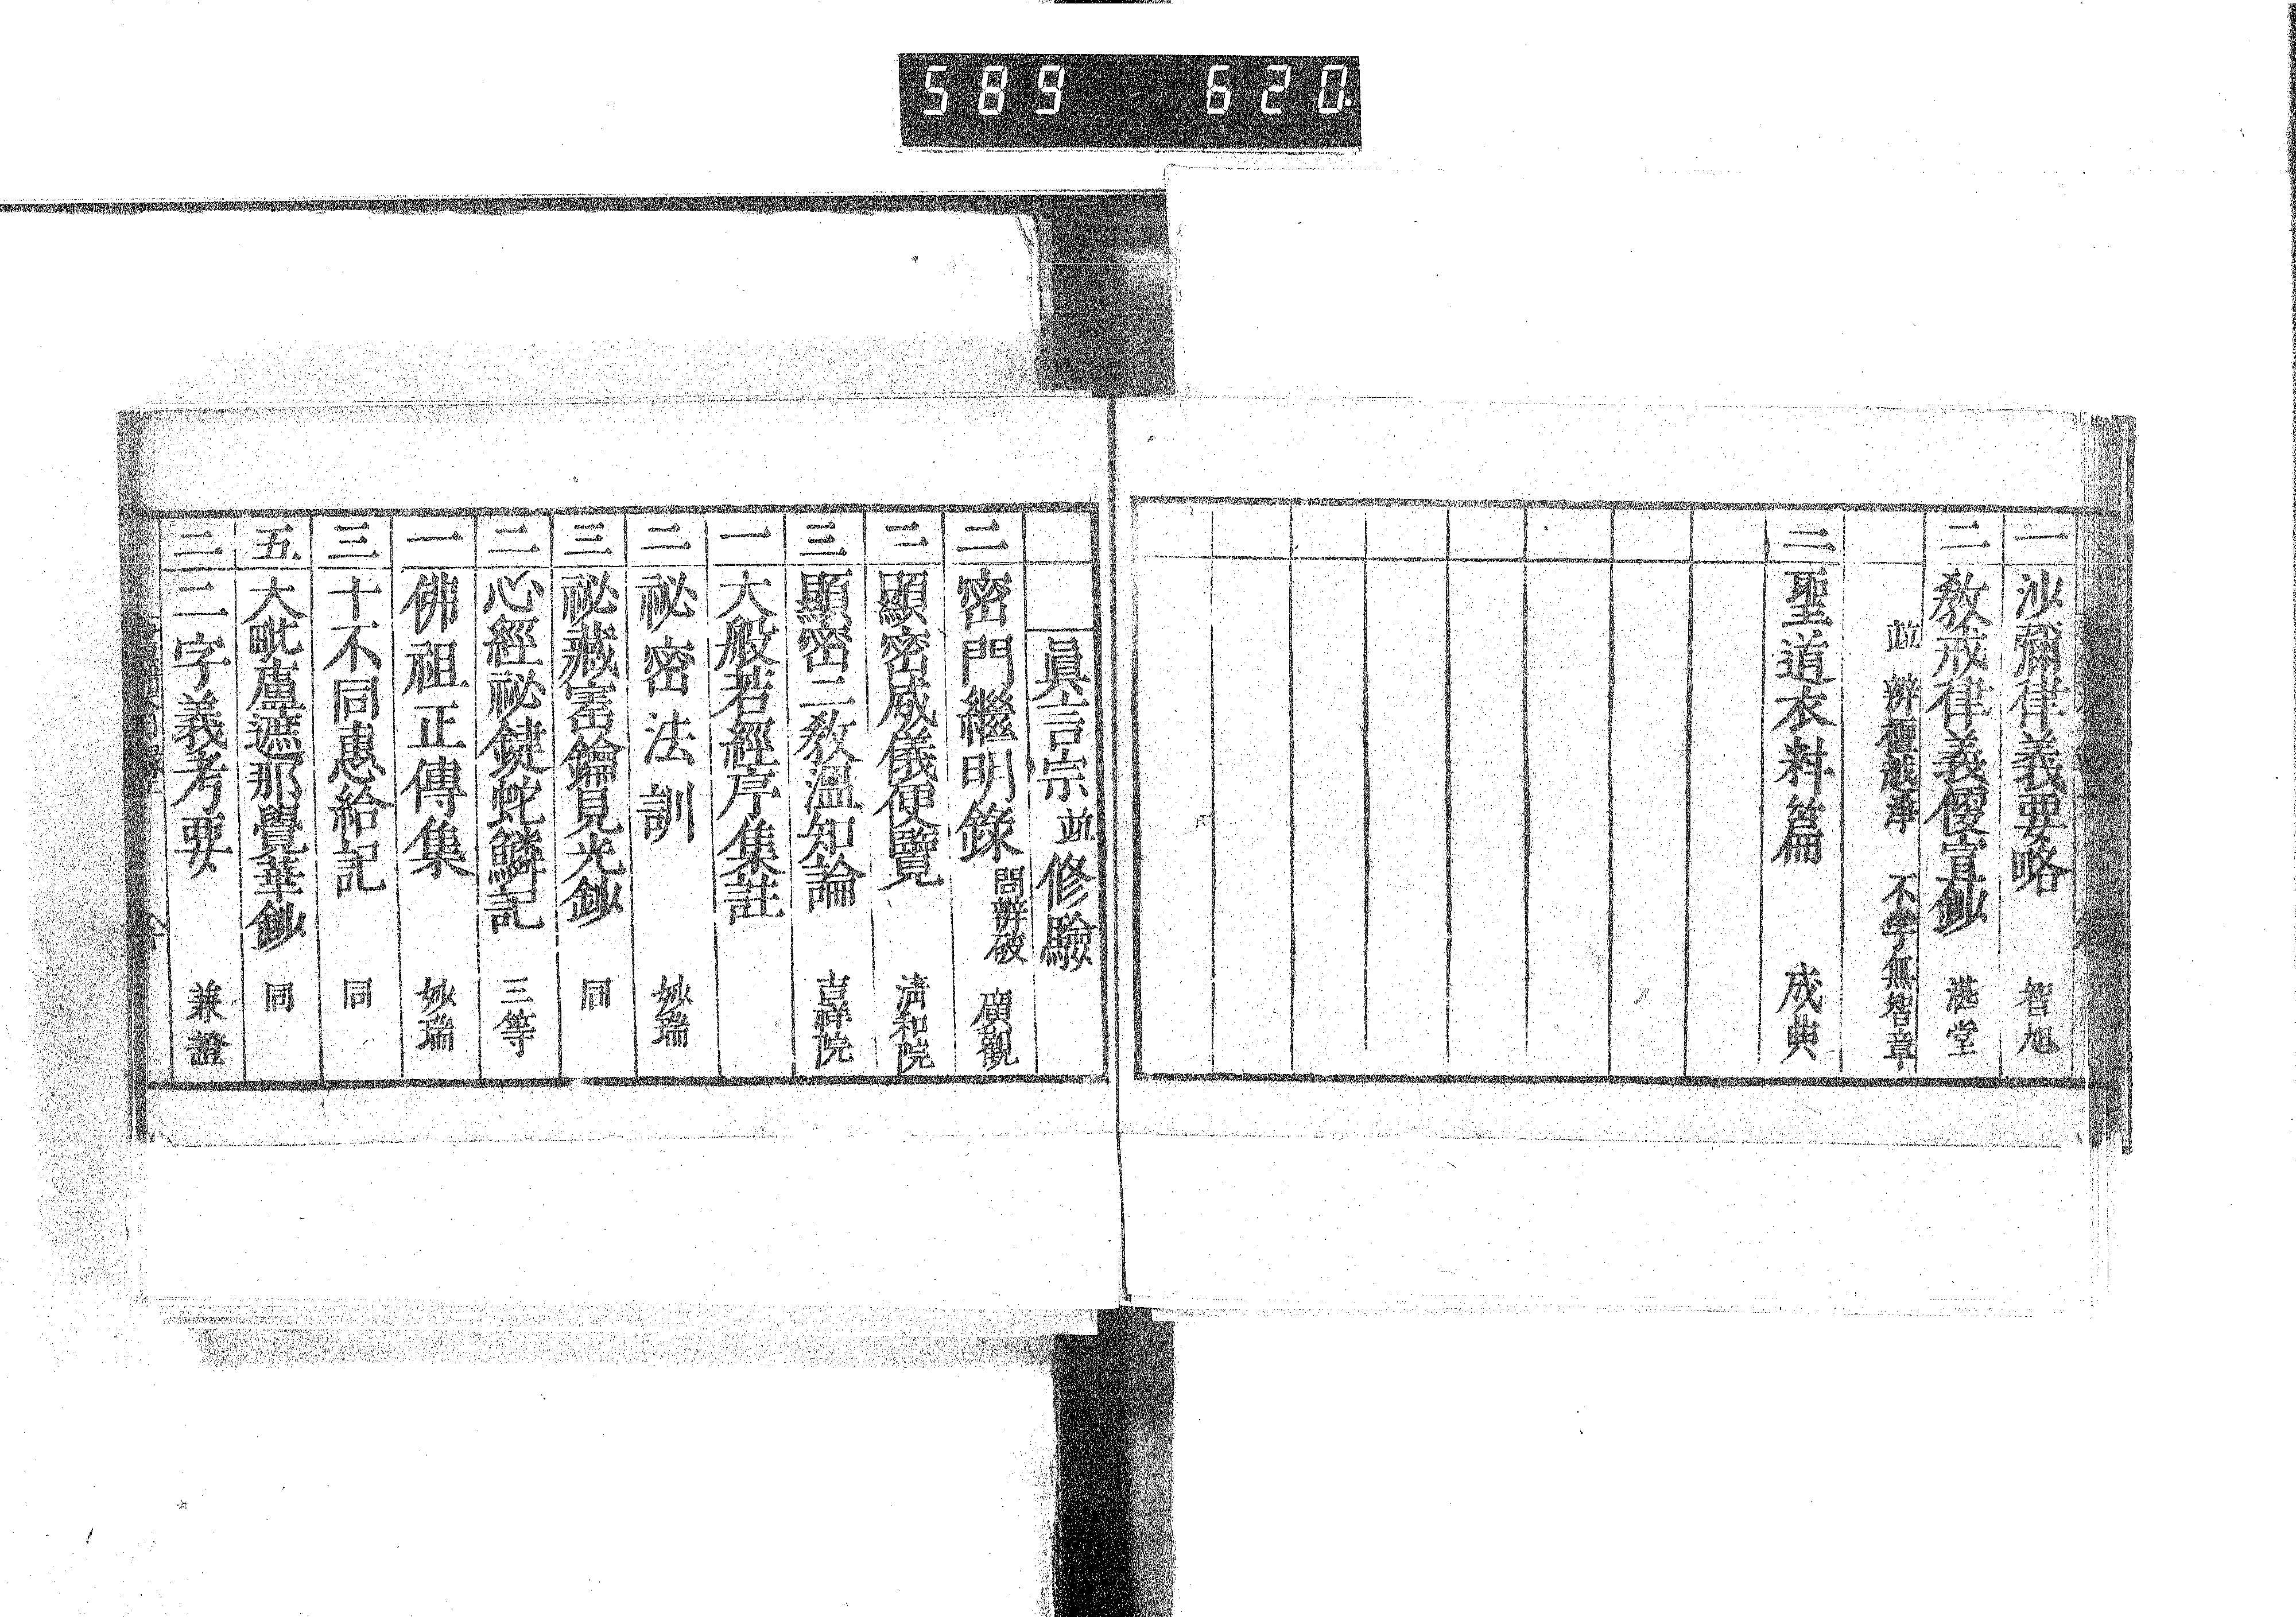 589 620.
一 沙彌律義要略 智旭
二 教戒律義優宣鈔 湛堂
並 辨檀越諍 不學無智章
二 聖道衣料篇 成典
眞言宗並修驗
二 密門繼明錄 問辨破 廣觀
二 顯密威儀便覽 淸和院
三 顯密二教溫知論 吉祥院
一 大般若經序集註
二 祕密法訓 妙瑞
三 祕藏寶鑰見光鈔 同
二 心經祕鍵蛇鱗記 三等
一 佛祖正傳集 妙瑞
三 十不同惠給記 同
五 大毗盧遮那覺華鈔 同
二 二字義考要 兼證